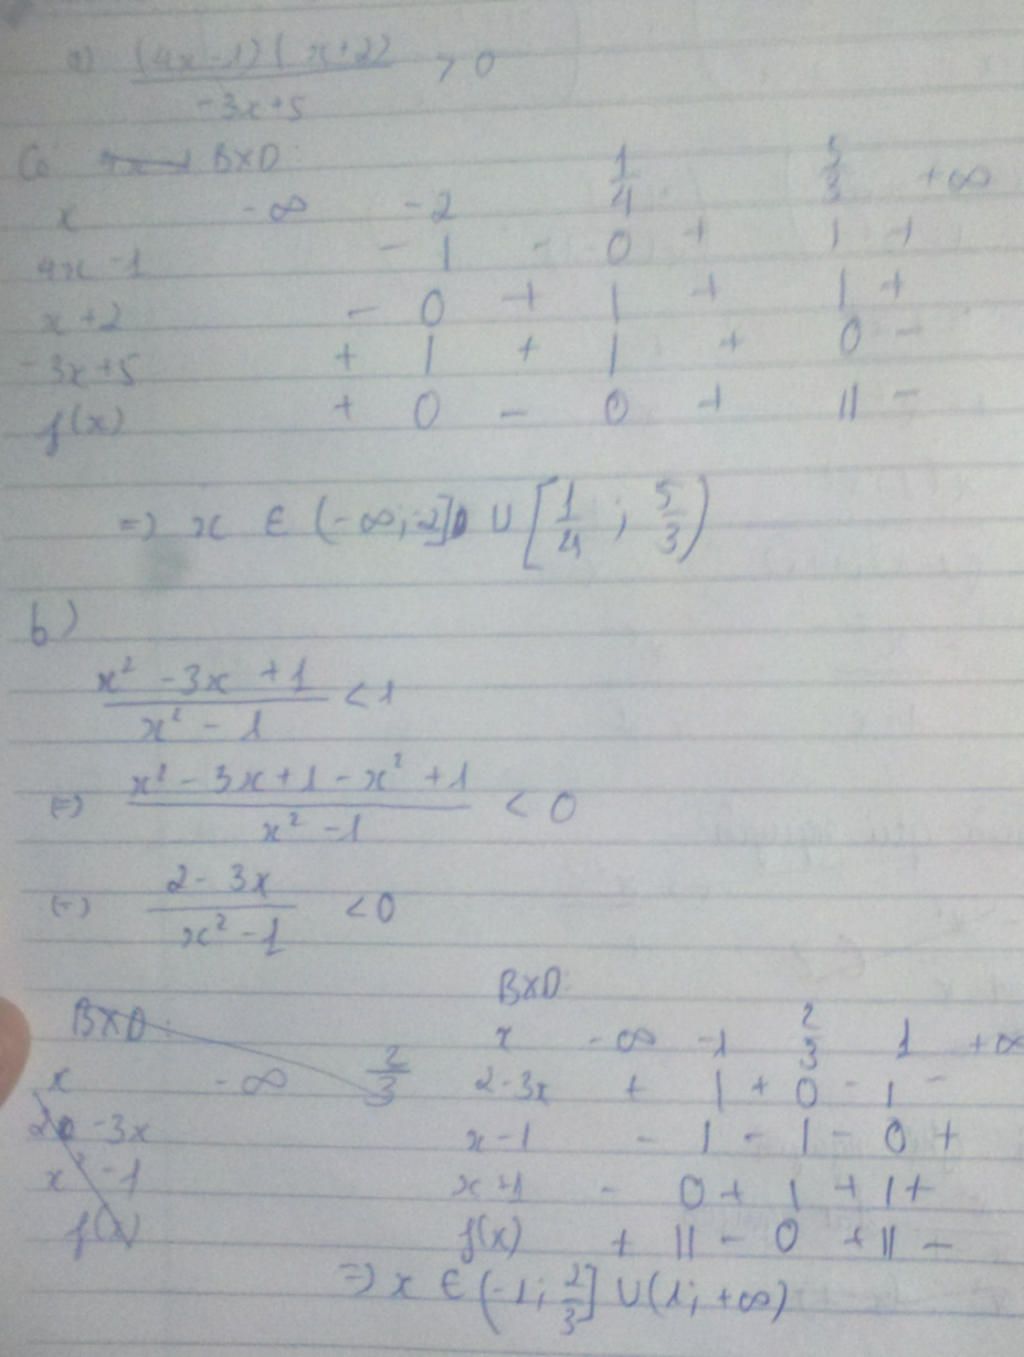 a) (4x-1)(x+2) / -3x+5 > 0
Có BXD:
x -∞ -2 1/4 5/3 +∞
4x-1 - | - 0 + | +
x+2 - 0 + | + | +
-3x+5 + | + | + 0 -
f(x) + 0 - 0 + || -
=> x ∈ (-∞;-2] ∪ [1/4 ; 5/3)
b)
x² -3x +1 / x² - 1 < 1
(=) x² - 3x + 1 - x² + 1 / x² - 1 < 0
(=) 2 - 3x / x² - 1 < 0
BXD:
x -∞ 2/3
2 -3x
x² -1
f(x)
BXD:
x -∞ -1 2/3 1 +∞
2-3x + | + 0 - | -
x-1 - | - | - 0 +
x+1 - 0 + | + | +
f(x) + || - 0 + || -
=> x ∈ (-1; 2/3] ∪ (1; +∞)